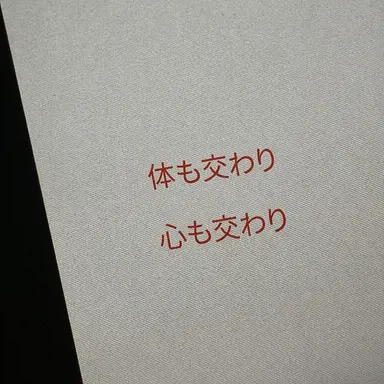 体も交わり
心も交わり